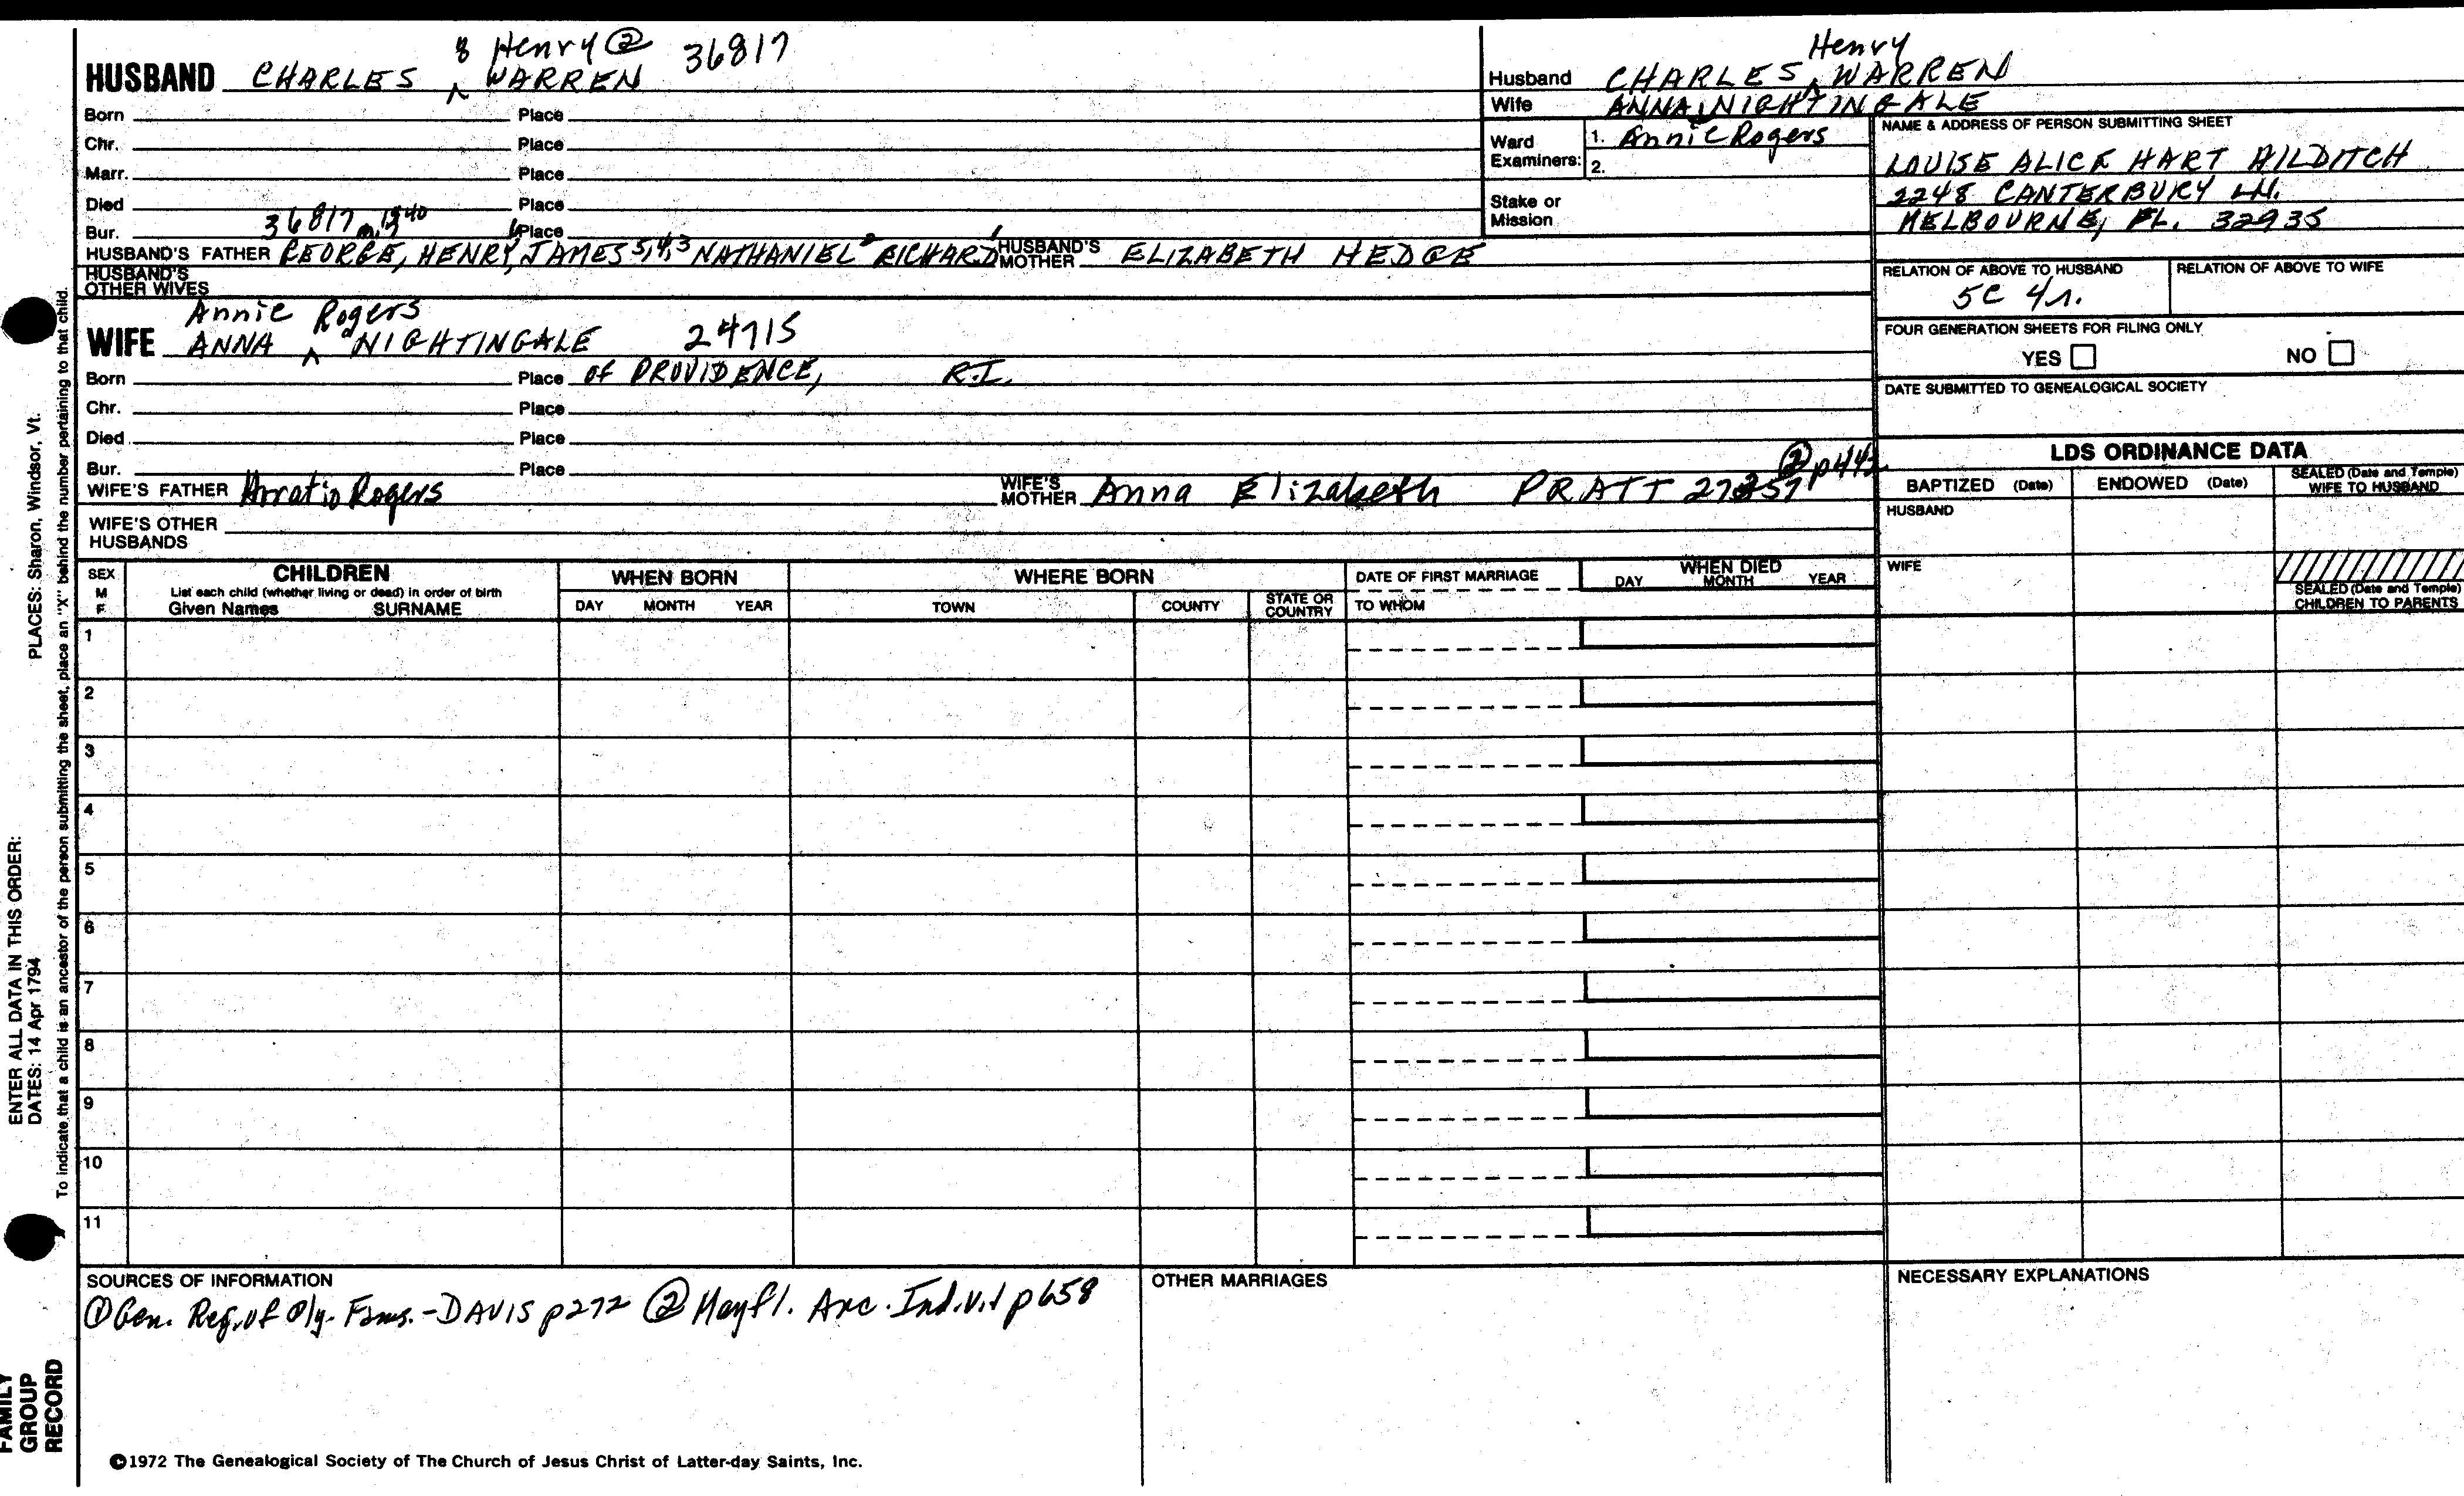 HUSBAND CHARLES ^ 8 Henry ② WARREN 36817
Born Place
Chr. Place
Marr. Place
Died Place
Bur. 36817 m. 1940 Place
HUSBAND'S FATHER GEORGE, HENRY, 6 JAMES 5,4,3 NATHANIEL 2 RICHARD 1 HUSBAND'S MOTHER ELIZABETH HEDGE
HUSBAND'S OTHER WIVES
WIFE Annie Rogers
ANNA ^ NIGHTINGALE 24715
Born Place of PROVIDENCE, R.I.
Chr. Place
Died Place
Bur. Place
WIFE'S FATHER Horatio Rogers WIFE'S MOTHER Anna Elizabeth PRATT ② p442
WIFE'S OTHER HUSBANDS
Husband CHARLES ^ Henry WARREN
Wife ANNA NIGHTINGALE
Ward Examiners: 1. Annie Rogers
2.
Stake or Mission
NAME & ADDRESS OF PERSON SUBMITTING SHEET
LOUISE ALICE HART HILDITCH
2248 CANTERBURY LN.
MELBOURNE, FL. 32935
RELATION OF ABOVE TO HUSBAND RELATION OF ABOVE TO WIFE
5C 4r.
FOUR GENERATION SHEETS FOR FILING ONLY
YES NO
DATE SUBMITTED TO GENEALOGICAL SOCIETY
LDS ORDINANCE DATA
BAPTIZED (Date) ENDOWED (Date) SEALED (Date and Temple) WIFE TO HUSBAND
HUSBAND
WIFE
SEALED (Date and Temple) CHILDREN TO PARENTS
SEX M F
CHILDREN
List each child (whether living or dead) in order of birth
Given Names SURNAME
WHEN BORN
DAY MONTH YEAR
WHERE BORN
TOWN COUNTY STATE OR COUNTRY
DATE OF FIRST MARRIAGE
TO WHOM
WHEN DIED
DAY MONTH YEAR
1
2
3
4
5
6
7
8
9
10
11
SOURCES OF INFORMATION
① Gen. Reg. of Ply. Fams. - DAVIS p272 ② Mayfl. Arc. Ind. V.1 p658
OTHER MARRIAGES
NECESSARY EXPLANATIONS
©1972 The Genealogical Society of The Church of Jesus Christ of Latter-day Saints, Inc.
FAMILY GROUP RECORD
ENTER ALL DATA IN THIS ORDER:
DATES: 14 Apr 1794
PLACES: Sharon, Windsor, Vt.
To indicate that a child is an ancestor of the person submitting the sheet, place an "X" behind the number pertaining to that child.